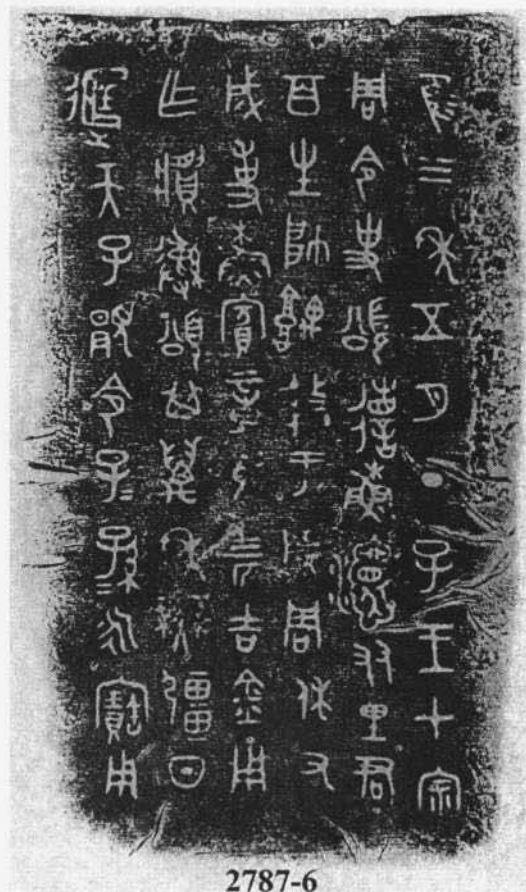 隹三年五月丁巳王才宗
周令史頌省穌𤔲友里君
百生帥𩛥盩于成周休又
成事穌賓章馬亖匹吉金用
乍𩰫彝頌其萬年無彊日
𨒙天子𩒨令子子孫孫永寶用
2787-6